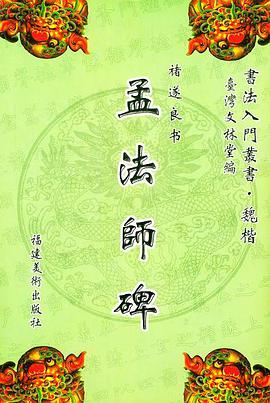 書法入門叢書·魏楷
臺灣文林堂編
褚遂良书
孟法師碑
福建美術出版社